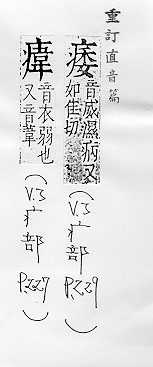 重訂直音篇
痿 音威濕病又
如隹切
(V.3 疒部 P.229)
音衣弱也
又音葦
(V.3 疒部 P.227)